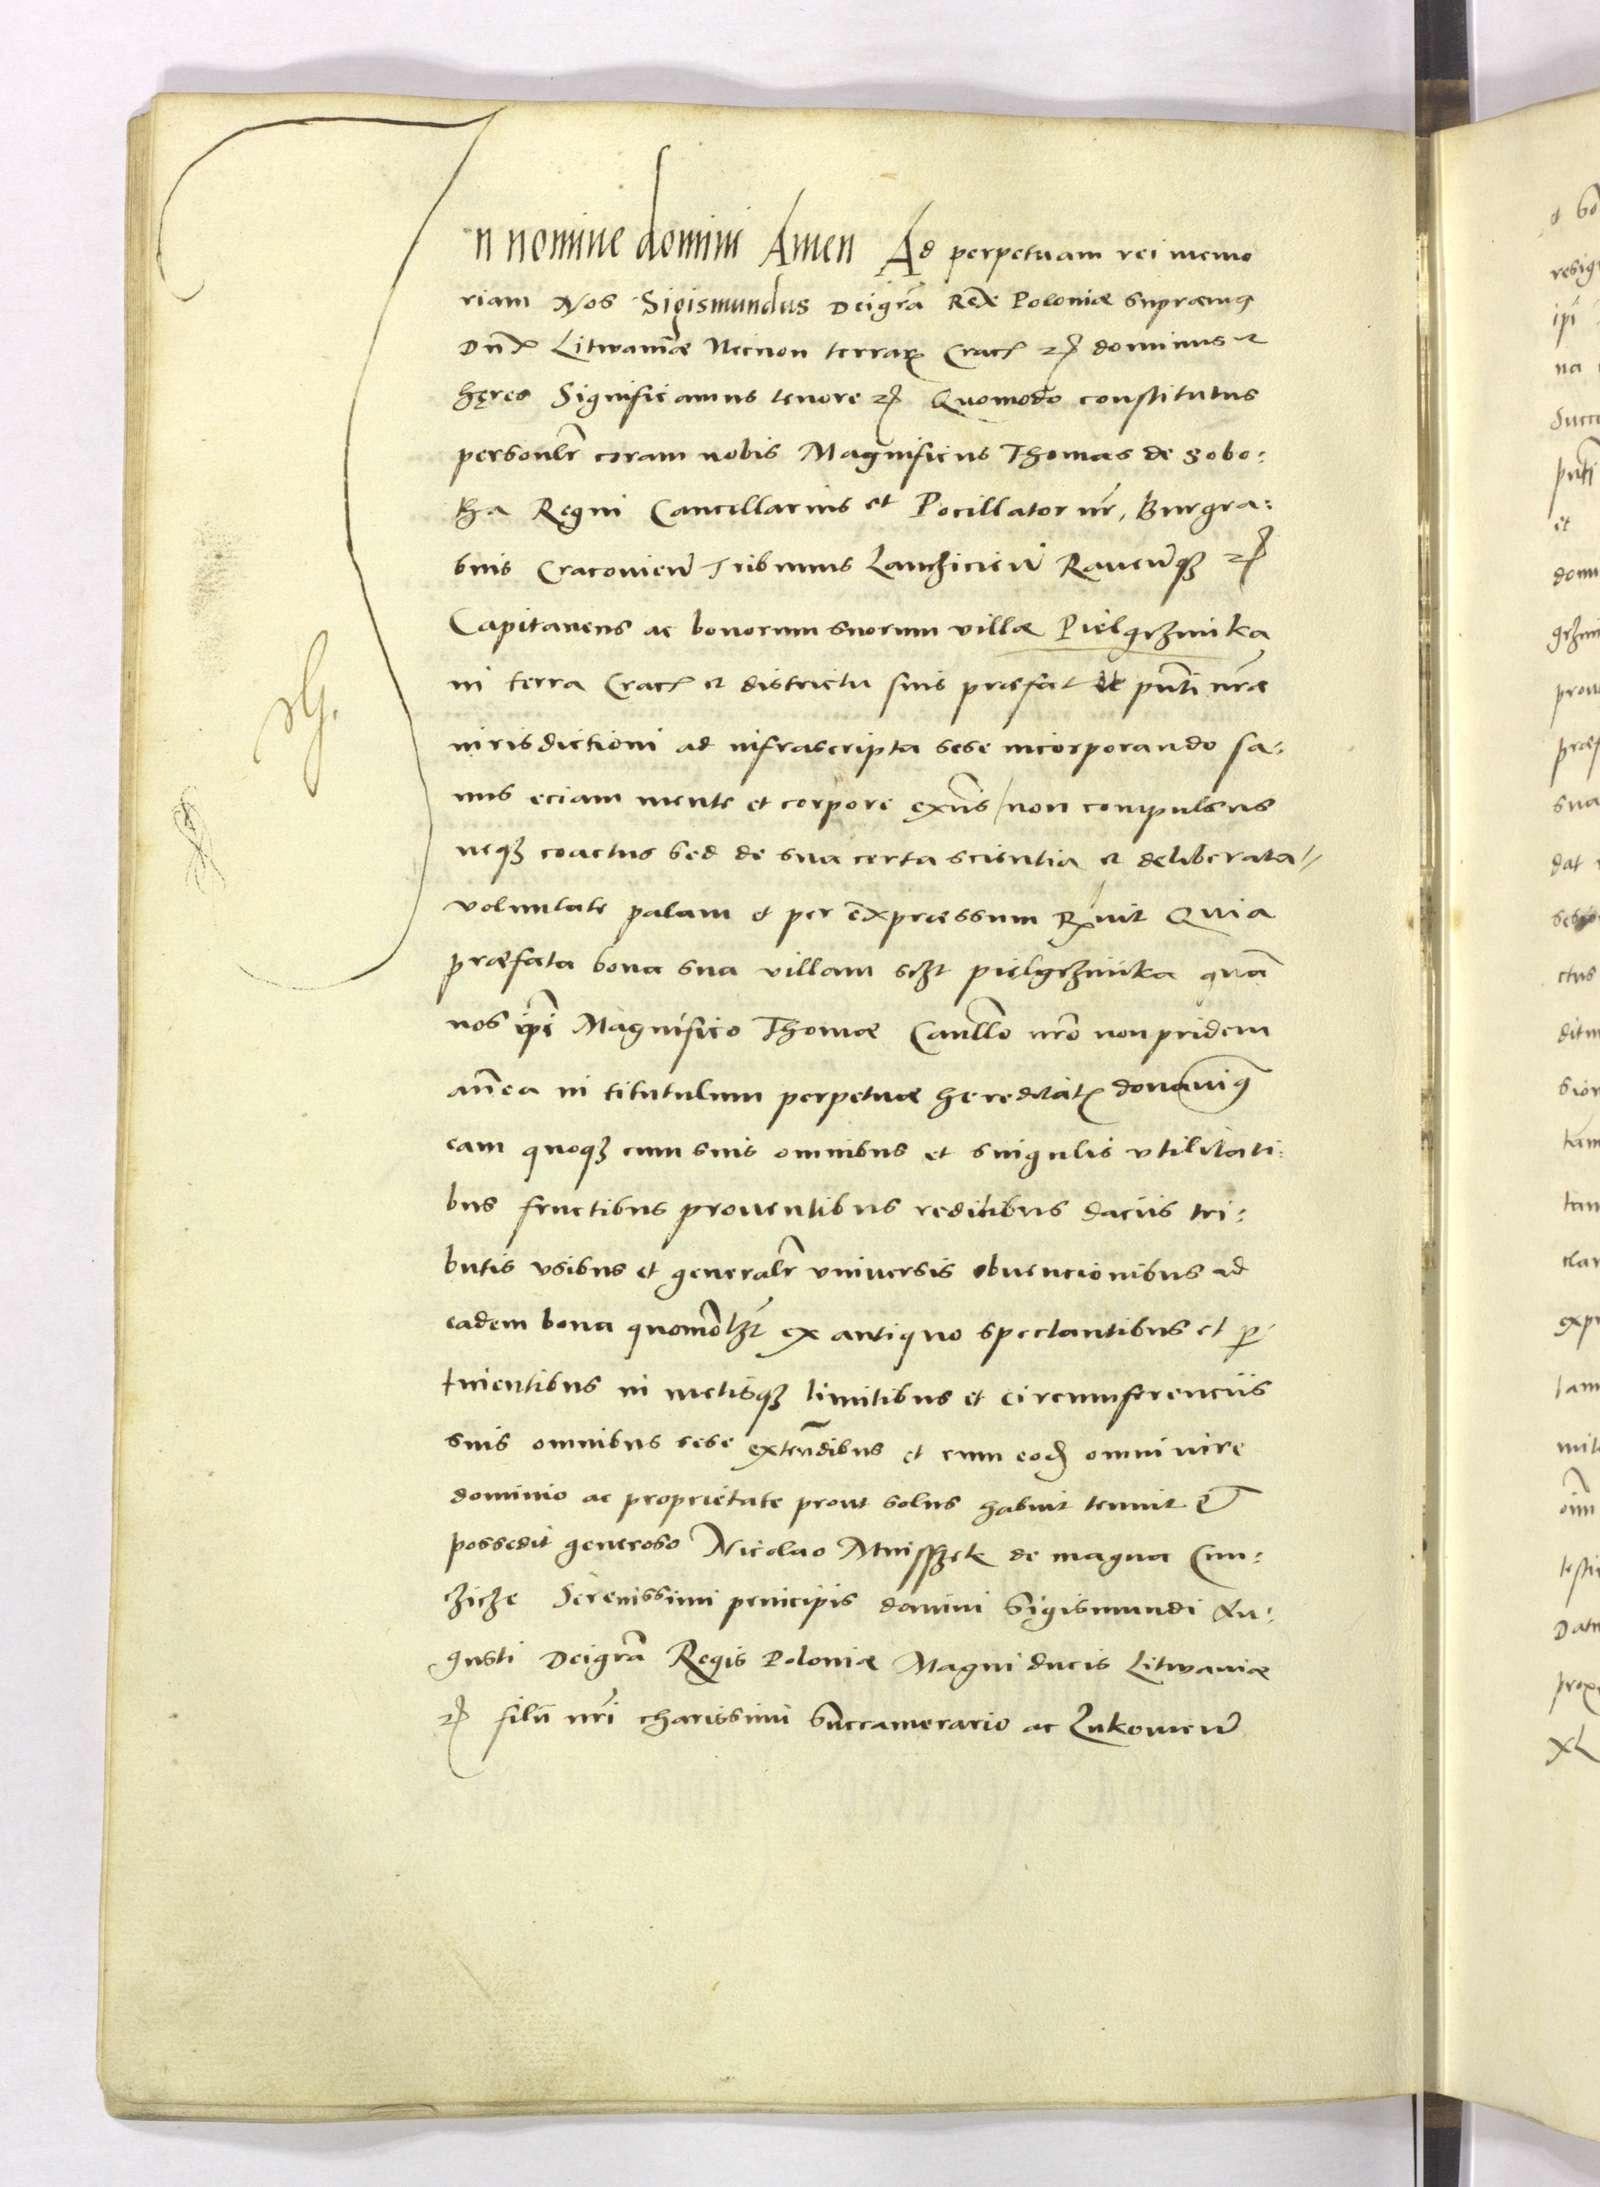 In nomine domini Amen Ad perpetuam rei memo
riam Nos Sigismundus Deigrã Rex Poloniæ supræmꝯ
Dux Litwaniæ Necnon terrarꝫ Crac etc dominus et
hęres Significamus tenore etc Quomodo constitutus
personlr̃ coram nobis Magnificus Thomas de Sobo:
tha Regni Cancellarius et Pocillator nr̃, Burgra:
bius Cracovien̄ Tribunus Lanchicien̄ Raven̄qꝫ etc
Capitaneus ac bonorum suorum villæ Pielgrzimka
in terra Crac et districtu suis præfat
iurisdictioni ad infrascripta sese incorporando sa:
nus eciam mente et corpore exñs non compulsus
neqꝫ coactus sed de sua certa scientia et deliberata
voluntate palam et per expræssum Rx̃uit Quia
præfata bona sua villam sczt pielgrzimka quã
nos ip̃i Magnifico Thomæ Canllo nro non pridem
añea in titutulum perpetuæ hereditat donavimꝯ
eam quoqꝫ cum suis omnibus et singulis vtilitati:
bus fructibus prouentibus reditibus daciis tri:
butis vsibus et generalr̃ vniversis obuencionibus ad
eadem bona quomolꝫt ex antiquo spectantibus et p
tinentibus in metisqꝫ limitibus et circumferenciis
suis omnibus sese extendñibus et cum eod omni iure
dominio ac proprietate prout solus habuit tenuit et
possedit generoso Nicolao Mnisszek de magna Cun:
czicze Serenissimi principis domini Sigismundi Au:
gusti Deigrã Regis Poloniæ Magni ducis Litwaniæ
etc filii nr̃i charissimi Succamerario ac Lukovien̄